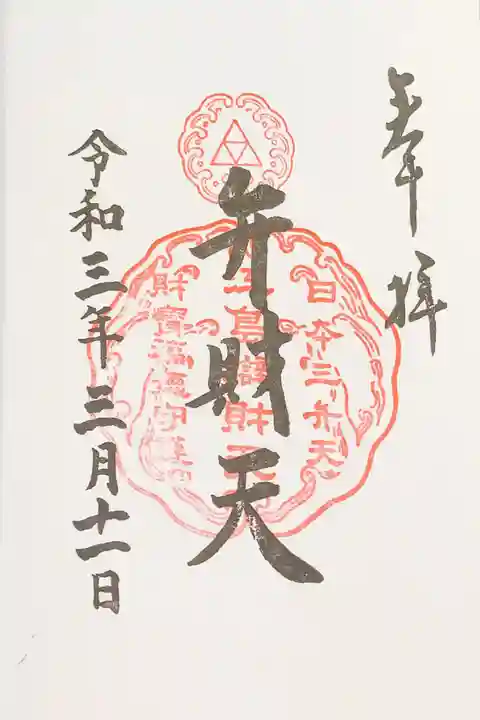 奉拝
日本三弁天
江島辯財天
財寳福徳守護
弁財天
令和三年三月十一日